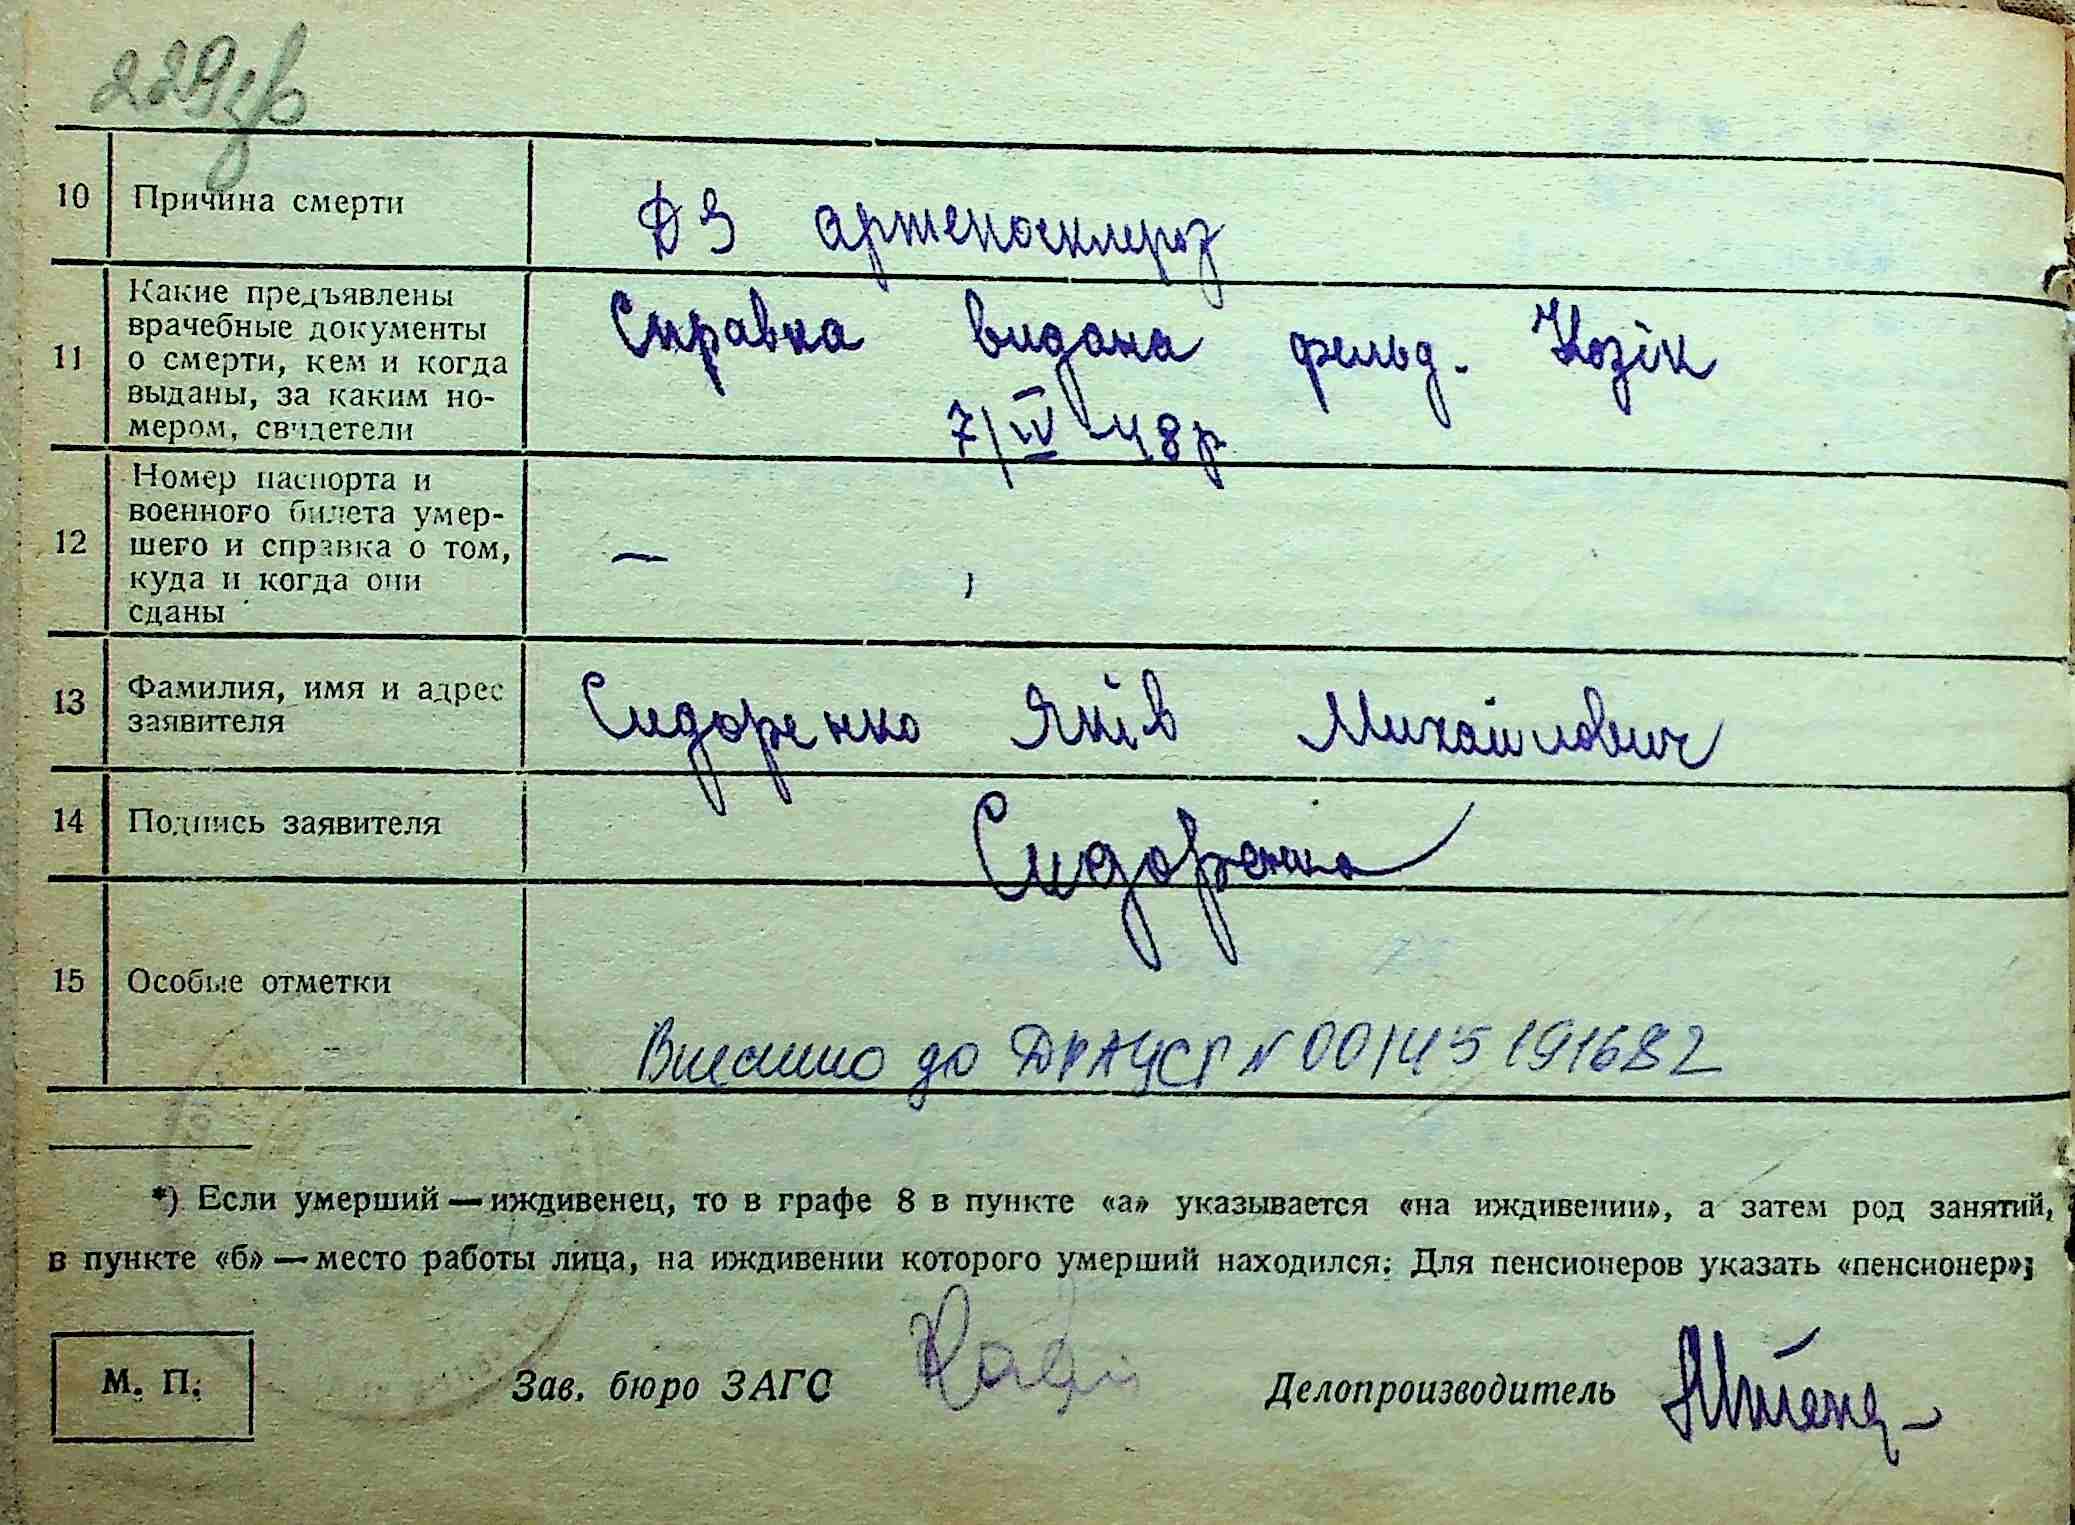 229зв
10 Причина смерти ДЗ артеносклероз
11 Какие предъявлены врачебные документы о смерти, кем и когда выданы, за каким но-
мером, свидетели
Справка видана фельд. Козік
7/IV-48р
12 Номер паспорта и
военного билета умер-
шего и справка о том,
куда и когда они
сданы
—
13 Фамилия, имя и адрес
заявителя
Сидоренко Яків Михайлович
14 Подпись заявителя Сидоренко
15 Особые отметки
Внесено до ДРАЦСГ N 00145191682
*) Если умерший — иждивенец, то в графе 8 в пункте «а» указывается «на иждивении», а затем род занятий,
в пункте «б» — место работы лица, на иждивении которого умерший находился; Для пенсионеров указать «пенсионер»;
М. П. Зав. бюро ЗАГС Делопроизводитель